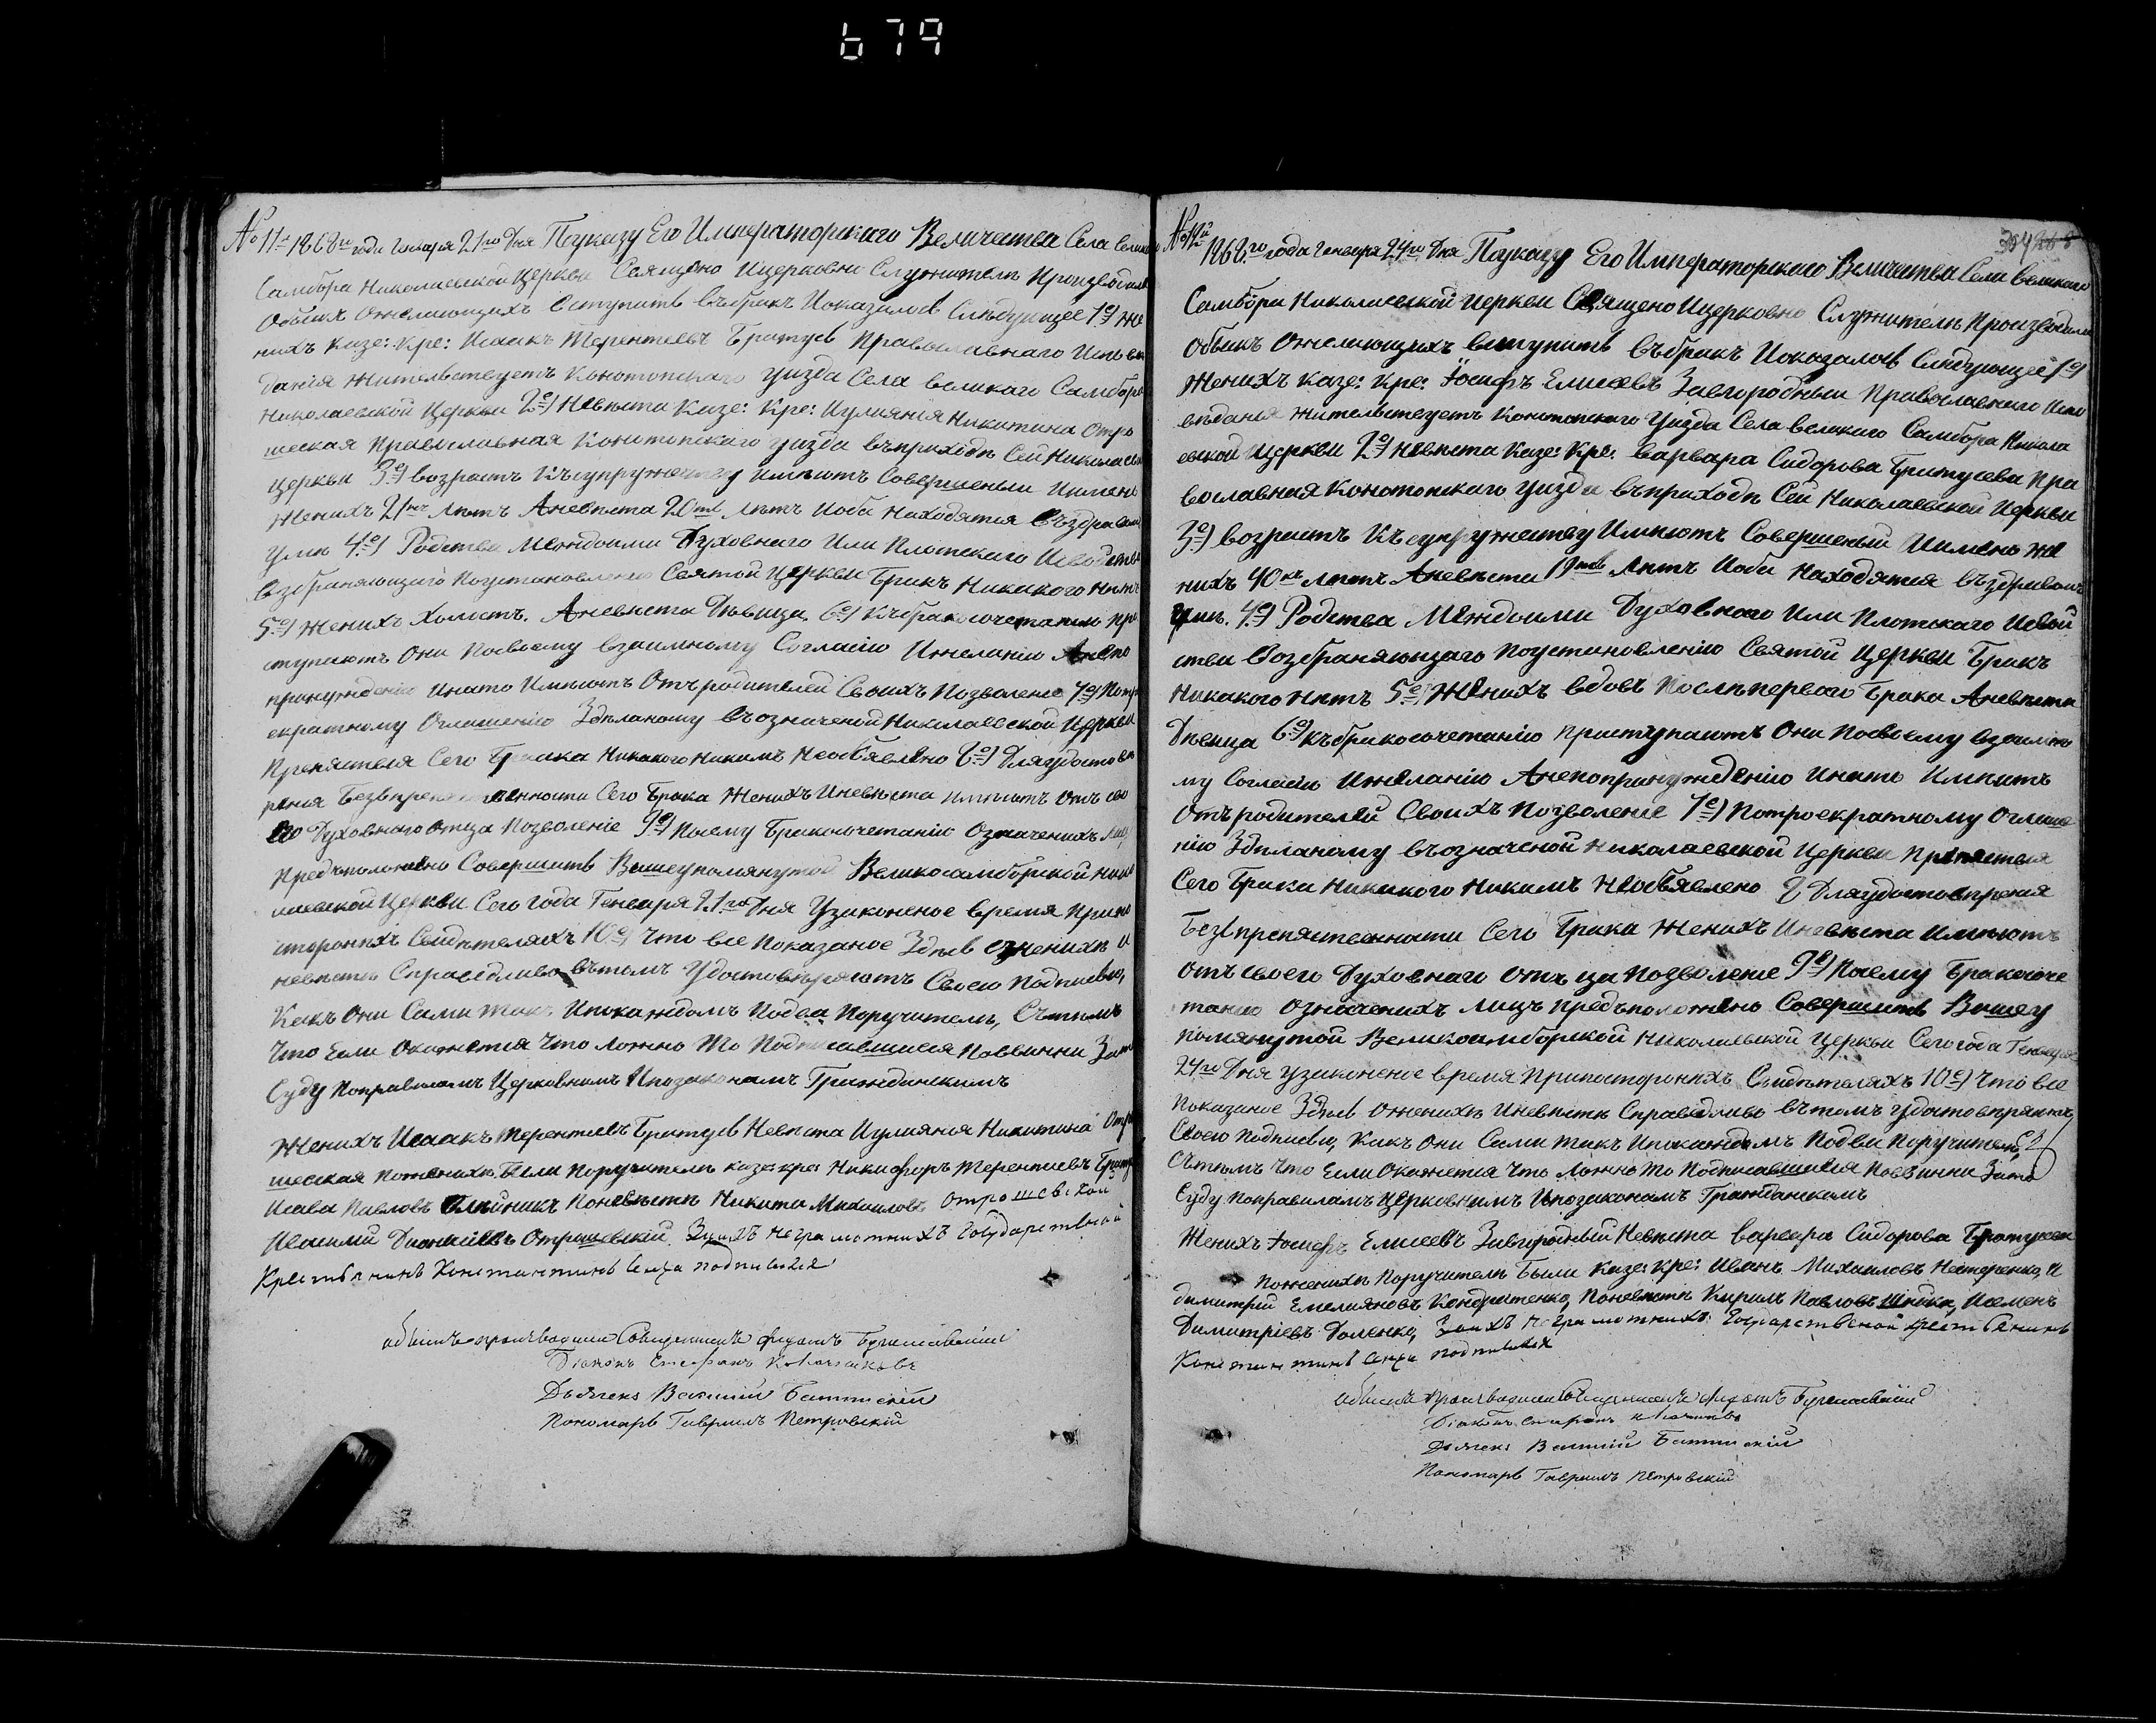 679
№ 11й 1868го года Генваря 21го Дня Поуказу Его Императорскаго Величества Села Велика
Самбора Николаевской Церкви Священо Ицерковно Служители Производили
Обыск Ожелающихъ Вступить Въбракъ Иоказалось Следующее 1е) Же
нихъ Казе: Кре: Исаакъ Терентіевъ Братусь Православнаго Испове
данія Жительствуетъ Конотопскаго уизда Села Великаго Самбора
Николаевской Церкви 2е) Невѣста Казе: Кре: Иулиянія Никитина Отро
шевская Православная Конотопскаго уизда въприходѣ Сей Николаевс
Церкви 3е) возрастъ Ксупружеству Имѣютъ Совершеный Имено
Женихъ 21нъ лѣтъ Аневѣста 20ть лѣтъ Иоба Находятся Въздравом
Умѣ 4е) Родства Междоими Духовнаго Или Плотскаго Исвойства
Возбраняющаго Поустановленію Святой Церкви Бракъ Никакого нѣтъ
5е) Женихъ Холостъ. Аневѣста Дѣвица. 6е) Къбракосочетанію пр
ступаютъ Они Посвоему взаимному Согласію Ижеланію Анепо
принужденію Инато Имѣютъ Отъродителей Своихъ Позволеніе 7е) Потр
екратному Оглашенію Здѣланому Въозначеной Николаевской Церкви
Препятствія Сего Брака Никакого Никимъ Необъявлено 8е) Дляудостовѣ
ренія Безпрепятственности Сего Брака Женихъ Иневѣста имѣютъ Отъ сво
его Духовнаго Отца Позволеніе 9е) Посему Бракосочетаніе Означенихъ Лиц
Предположено Совершить Вышеупомянутой Великосамборской Нико
лаевской Церкви Сего года Генваря 21го Дня Узаконеное Время Припо
сторонихъ Свидѣтеляхъ 10е) Что все Показаное Здѣсь Оженихѣ И
невѣстѣ Справедливо вътомъ Удостовѣряютъ Своею Подписью,
Какъ Они Сами такъ Ипокаждомъ Подва Поручители, Сътѣмъ
Что Если Окажется Что ложно То Подписавшиеся Повинни Зато
Суду Поправиламъ Церковнимъ Ипозаконамъ Гражданскимъ
Женихъ Исаакъ Терентіевъ Братусь Невѣста Иулиянія Никитина Отро
шевская Поженихѣ Были Поручители казе кре: Никифоръ Терентиевъ Брату
Исава Павловъ Олѣйникъ Поневѣстѣ Никита Михаиловъ Отрошевской
Иванъ Дионисіевъ Отрошевский. Зних неграмотнихъ Государственой
Крестьянинъ Константинъ Сенча подписался
обыскъ производили Священникъ Федотъ Буршевский
Діаконъ Стефанъ
Дьячекъ Василий Батинский
Пономарь Гавриилъ Петровскій
№ 12й
304
1868го года Генваря 24го Дня Поуказу Его Императорскаго Величества Села Великаго
Самбора Николаевской Церкви Священо Ицерковно Служители Производили
Обыскъ Ожелающихъ вступить въбракъ Иоказалось Следующее 1е)
Женихъ казе: Кре: Іосифъ Елисеевъ Завгородный Православнаго Испо
вѣданія Жительствуетъ Конотопскаго Уизда Села великаго Самбора Никола
евской Церкви 2е) Невѣста Казе: Кре: Варвара Сидорова Братусева Пра
вославная Конотопскаго Уизда въприходѣ Сей Николаевской Церкви
3е) возрастъ Къ супружеству Имѣютъ Совершеный Имено же
нихъ 40къ лѣтъ Аневѣста 19ть лѣтъ Иоба находятся въздравомъ
Умѣ. 4е) Родства Междоими Духовнаго Или Плотскаго Исвой
ства Возбраняющаго Поустановленію Святой Церкви Бракъ
Никакого нѣтъ 5е) Женихъ вдовъ Послѣпервого Брака Аневѣста
Дѣвица 6е) къбракосочетанію приступаютъ Они Посвоему взаимно
му Согласію Ижеланію Анепопринужденію Инато Имѣютъ
Отъродителей Своихъ Позволеніе 7е) Потроекратному Оглаше
нію Здѣланому въозначеной Николаевской Церкви Препятствія
Сего Брака Никакого Никимъ Необъявлено 8 Дляудостовѣренія
Безпрепятственности Сего Брака Женихъ Иневѣста имѣютъ
отъ своего Духовнаго отъца Позволеніе 9е) Посему Бракосоче
таніе Означенихъ Лицъ Предположено Совершить Вышеу
помянутой Великосамборской Николаевской Церкви Сего года Генваря
24го Дня узаконеное время Припосторонихъ Свидѣтеляхъ 10е) Что все
Показаное Здѣсь Оженихѣ Иневѣстѣ Справедливо вътомъ удостовѣряютъ
Своею Подписью, Какъ Они Сами такъ Ипокаждомъ Подва Поручители
Сътѣмъ Что Если Окажется Что ложно То Подписавшиеся Повинни Зато
Суду Поправиламъ Церковнимъ Ипозаконамъ Гражданскимъ
Женихъ Іосифъ Елисеевъ Завгородный Невѣста варвара Сидорова Братусева
Поженихѣ Поручители Были Казе: кре: Иванъ Михаиловъ Нестеренко, И
димитрий Емелияновъ Кондратенко, Поневѣстѣ Кирилъ Павловъ Шпака, Исеменъ
Димитріевъ Доленко, Зних неграмотнихъ Государственой крестьянинъ
Константинъ Сенча подписался
обыскъ производили Священникъ Федотъ Буршевский
Діаконъ Стефанъ
Дьячекъ Василий Батинский
Пономарь Гавриилъ Петровский